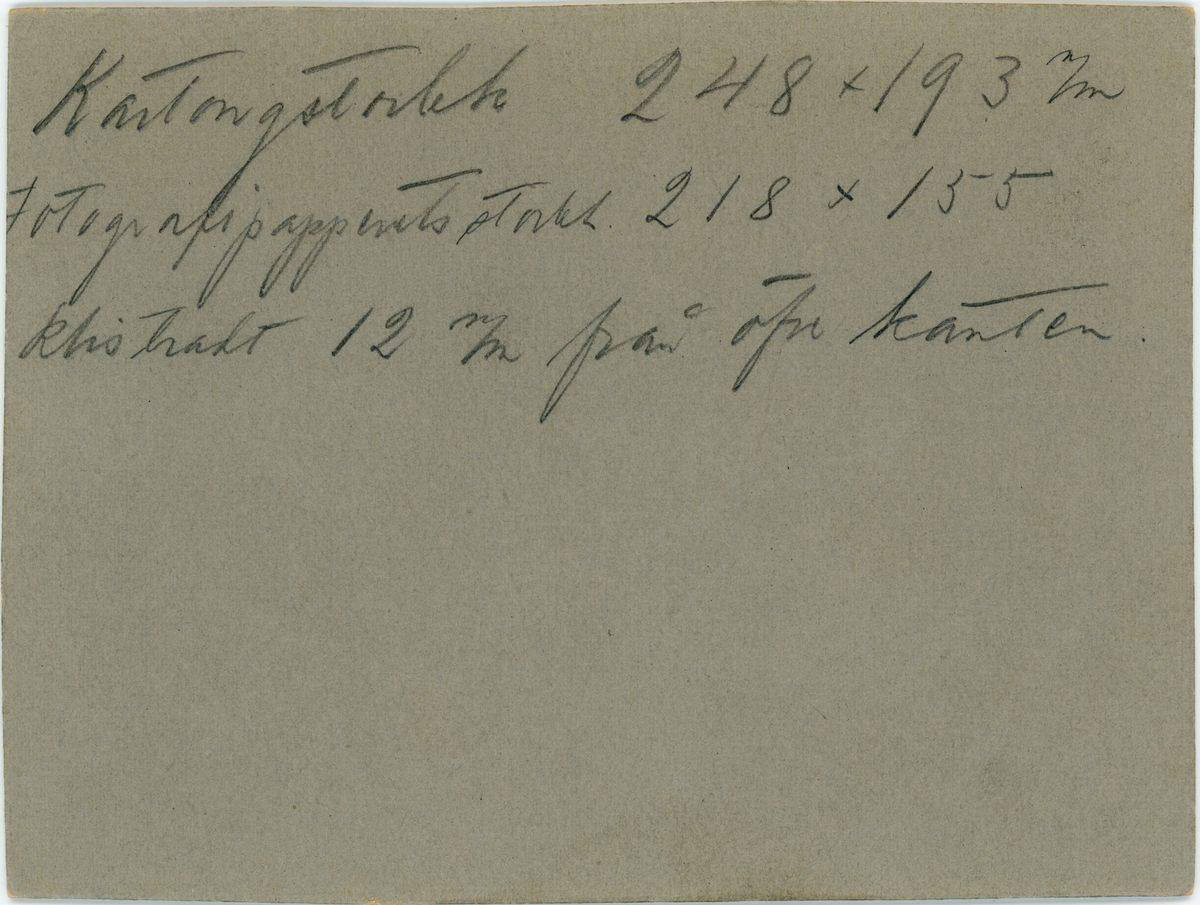 Kartongstorlek 248 × 193 m/m
Fotografipapperets storlek. 218 × 155
klistradt 12 m/m från öfre kanten.